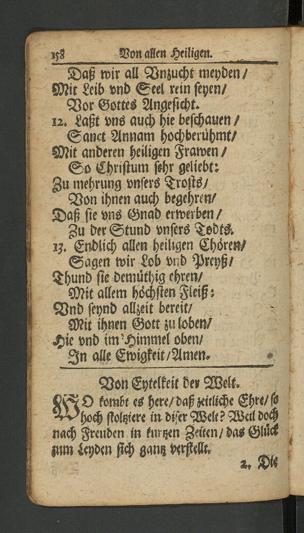 158 Von allen Heiligen.
Daß wir all Vnzucht meyden/
Mit Leib vnd Seel rein seyen/
Vor Gottes Angesicht.
12. Laßt vns auch hie beschauen/
Sanct Annam hochberühmt/
Mit anderen heiligen Frawen/
So Christum sehr geliebt:
Zu mehrung vnsers Trosts/
Von ihnen auch begehren/
Daß sie vns Gnad erwerben/
Zu der Stund vnsers Todts.
13. Endlich allen heiligen Chören/
Sagen wir Lob vnd Preyß/
Thund sie demüthig ehren/
Mit allem höchsten Fleiß:
Vnd seynd allzeit bereit/
Mit ihnen Gott zu loben/
Hie vnd im Himmel oben/
In alle Ewigkeit/Amen.
Von Eytelkeit der Welt.
WO kombt es here/daß zeitliche Ehre/so
hoch stoltziere in diser Welt? Weil doch
nach Freuden in kurtzen Zeiten/das Glück
zum Leyden sich gantz verstellt.
2. Die